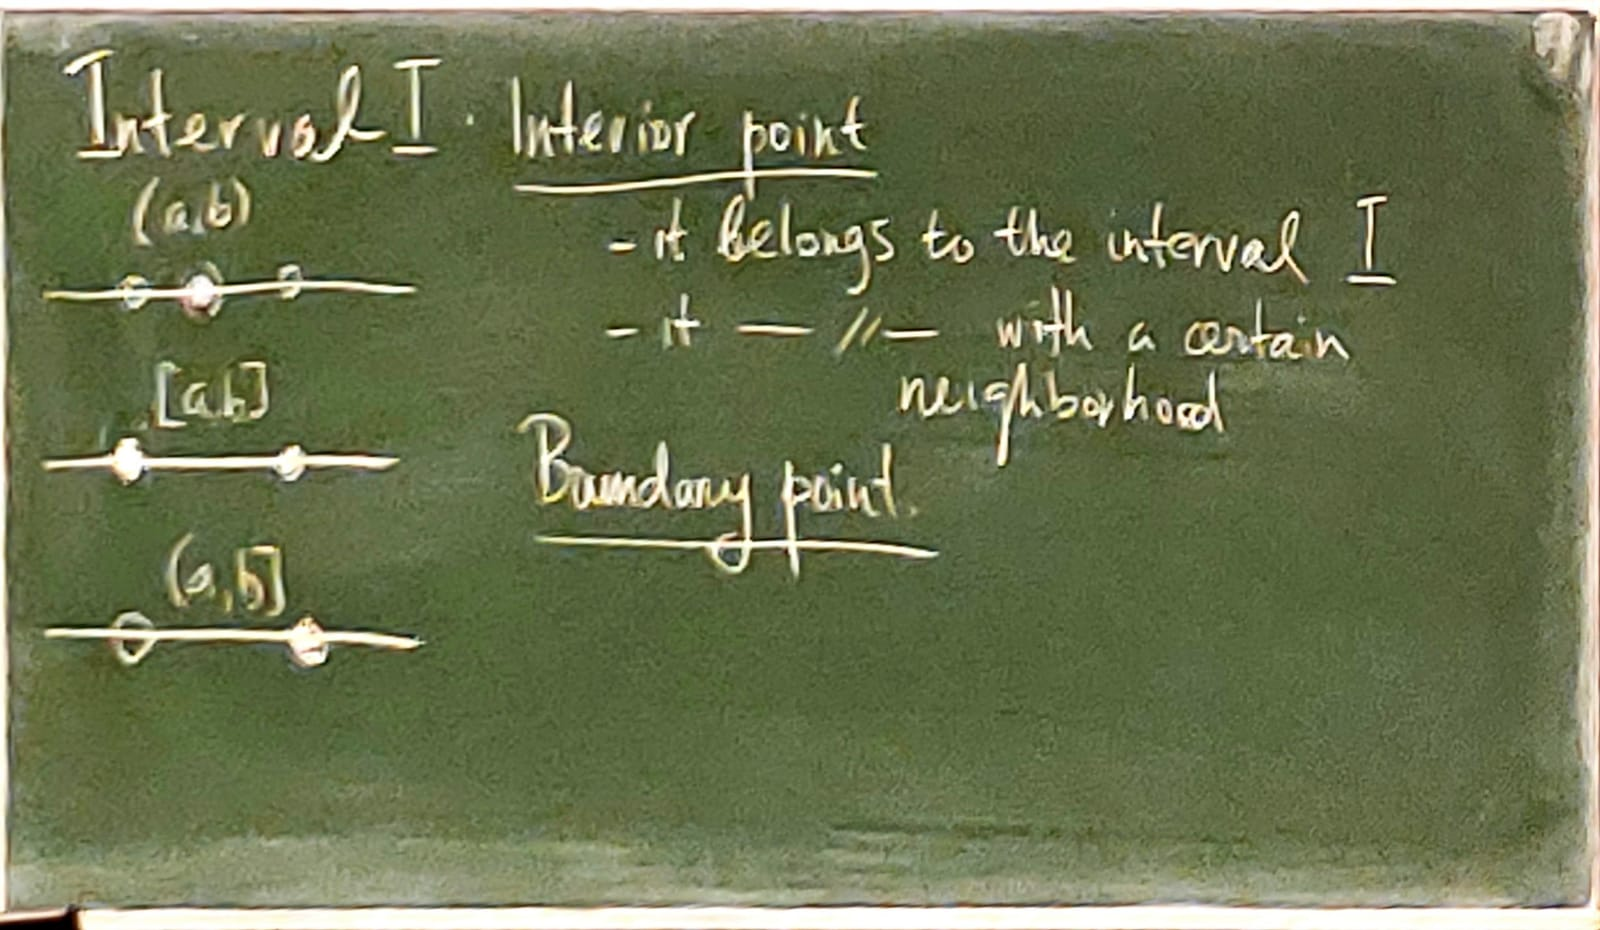 Interval I. Interior point
(a,b)
- it belongs to the interval I
- it — // — with a certain
neighborhood
[a,b]
Boundary point.
(a,b]